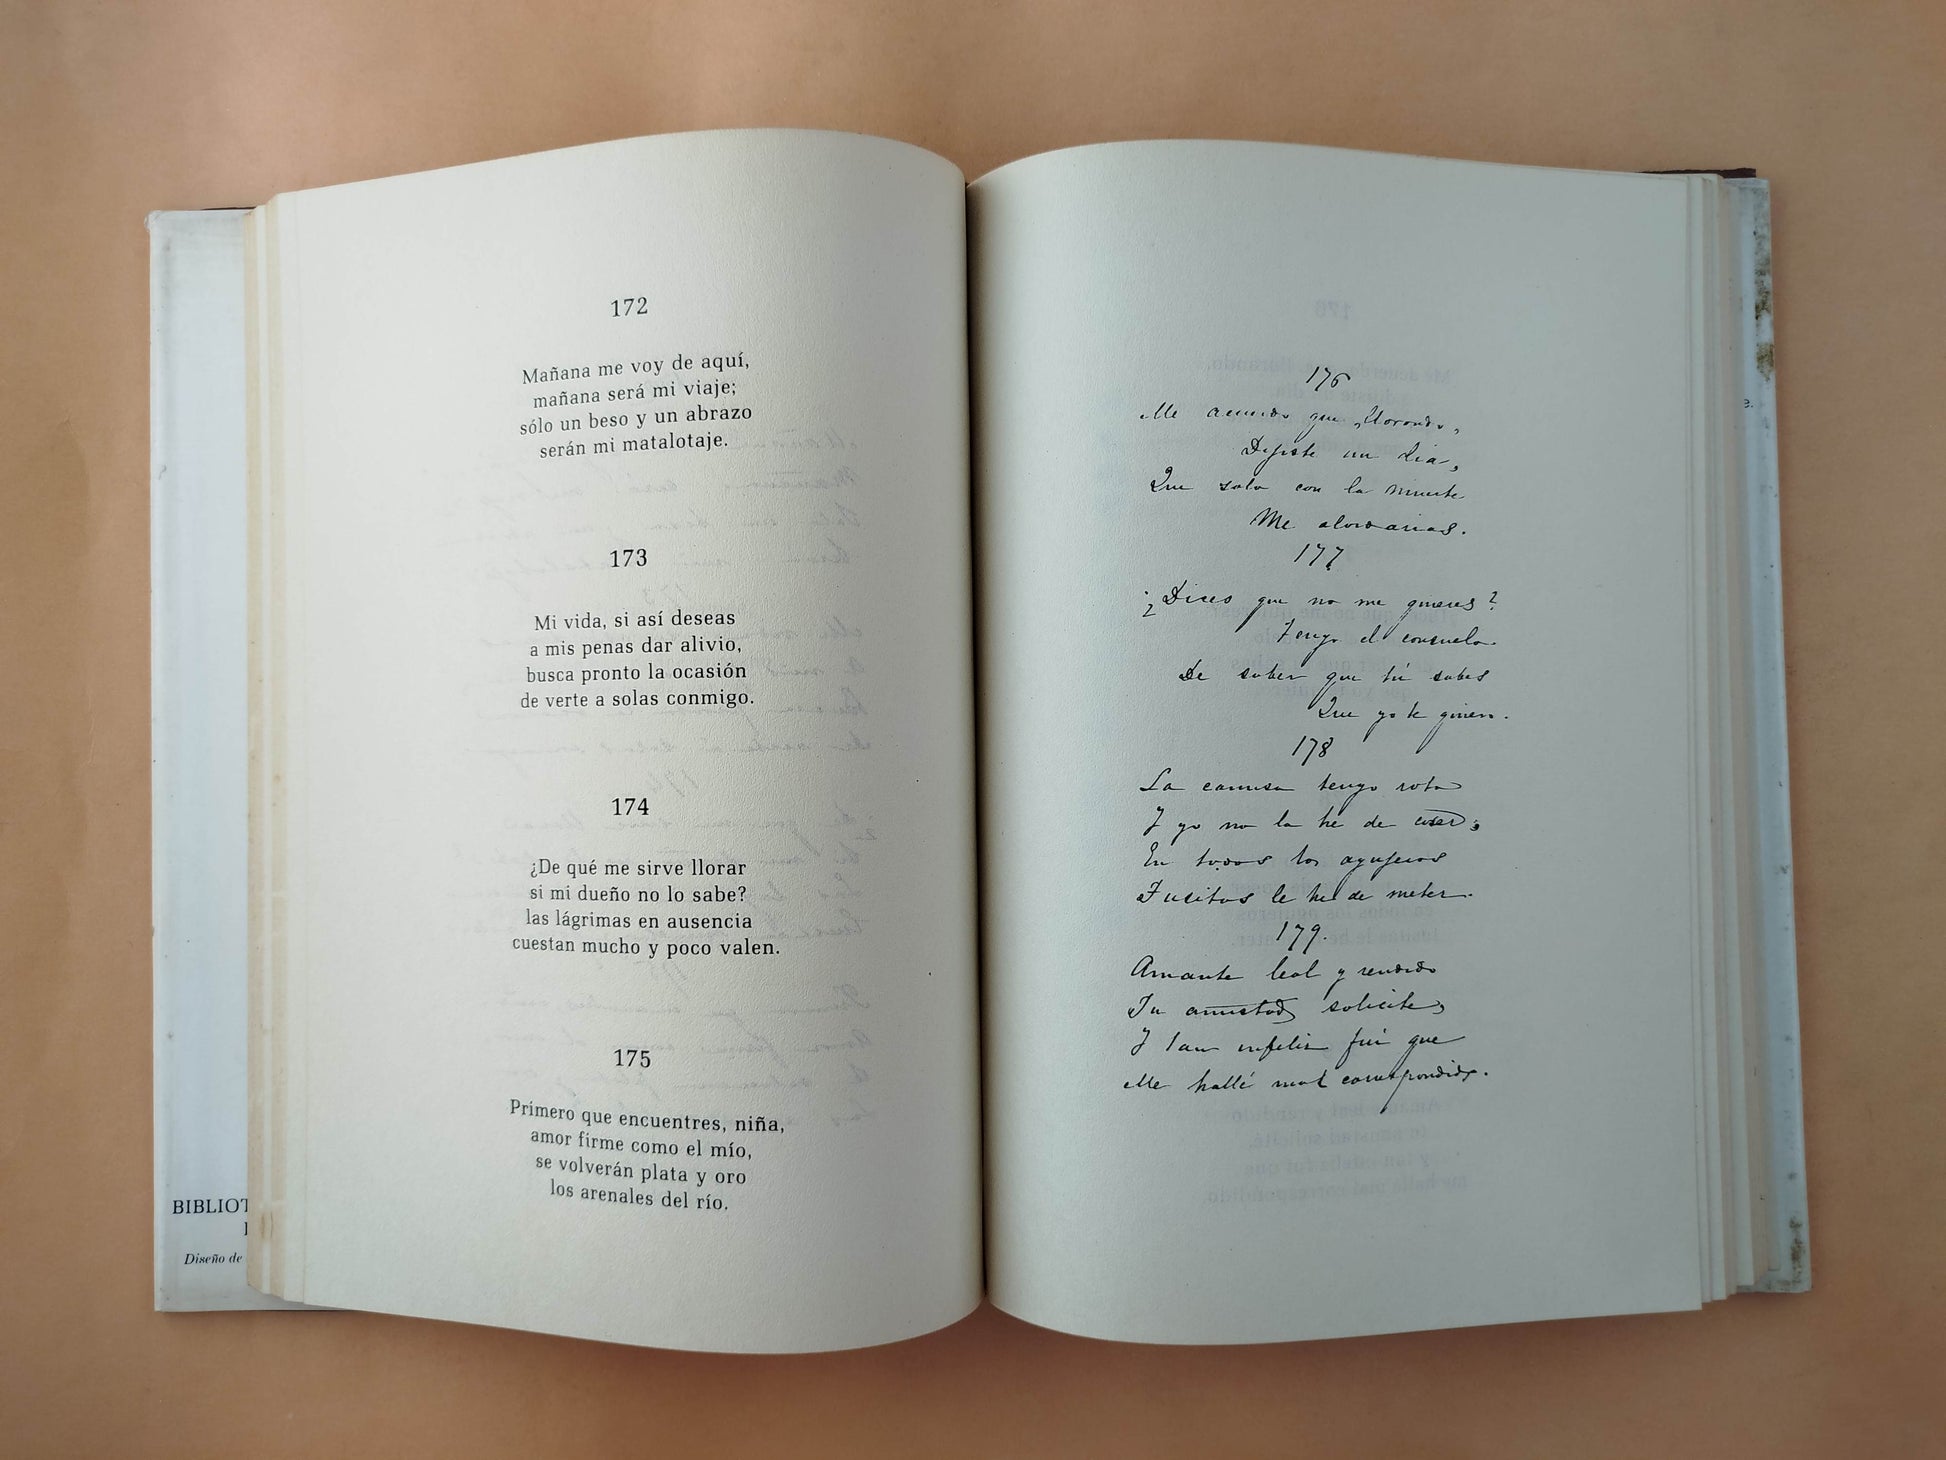 172
Mañana me voy de aquí,
mañana será mi viaje;
sólo un beso y un abrazo
serán mi matalotaje.
173
Mi vida, si así deseas
a mis penas dar alivio,
busca pronto la ocasión
de verte a solas conmigo.
174
¿De qué me sirve llorar
si mi dueño no lo sabe?
las lágrimas en ausencia
cuestan mucho y poco valen.
175
Primero que encuentres, niña,
amor firme como el mío,
se volverán plata y oro
los arenales del río.
BIBLIOT
Diseño de
176
Me acuerdo que llorando,
Dijiste un dia,
Que solo con la muerte
Me olvidarias.
177
¿Dices que no me quieres?
Tengo el consuelo
De saber que tú sabes
Que yo te quiero.
178
La camisa tengo rota
Y yo no la he de coser;
En todos los agujeros
Jusitos le he de meter.
179.
Amante leal y rendido
Tu amistad solicite,
Y tan infeliz fui que
Me hallé mal correspondido.
e.